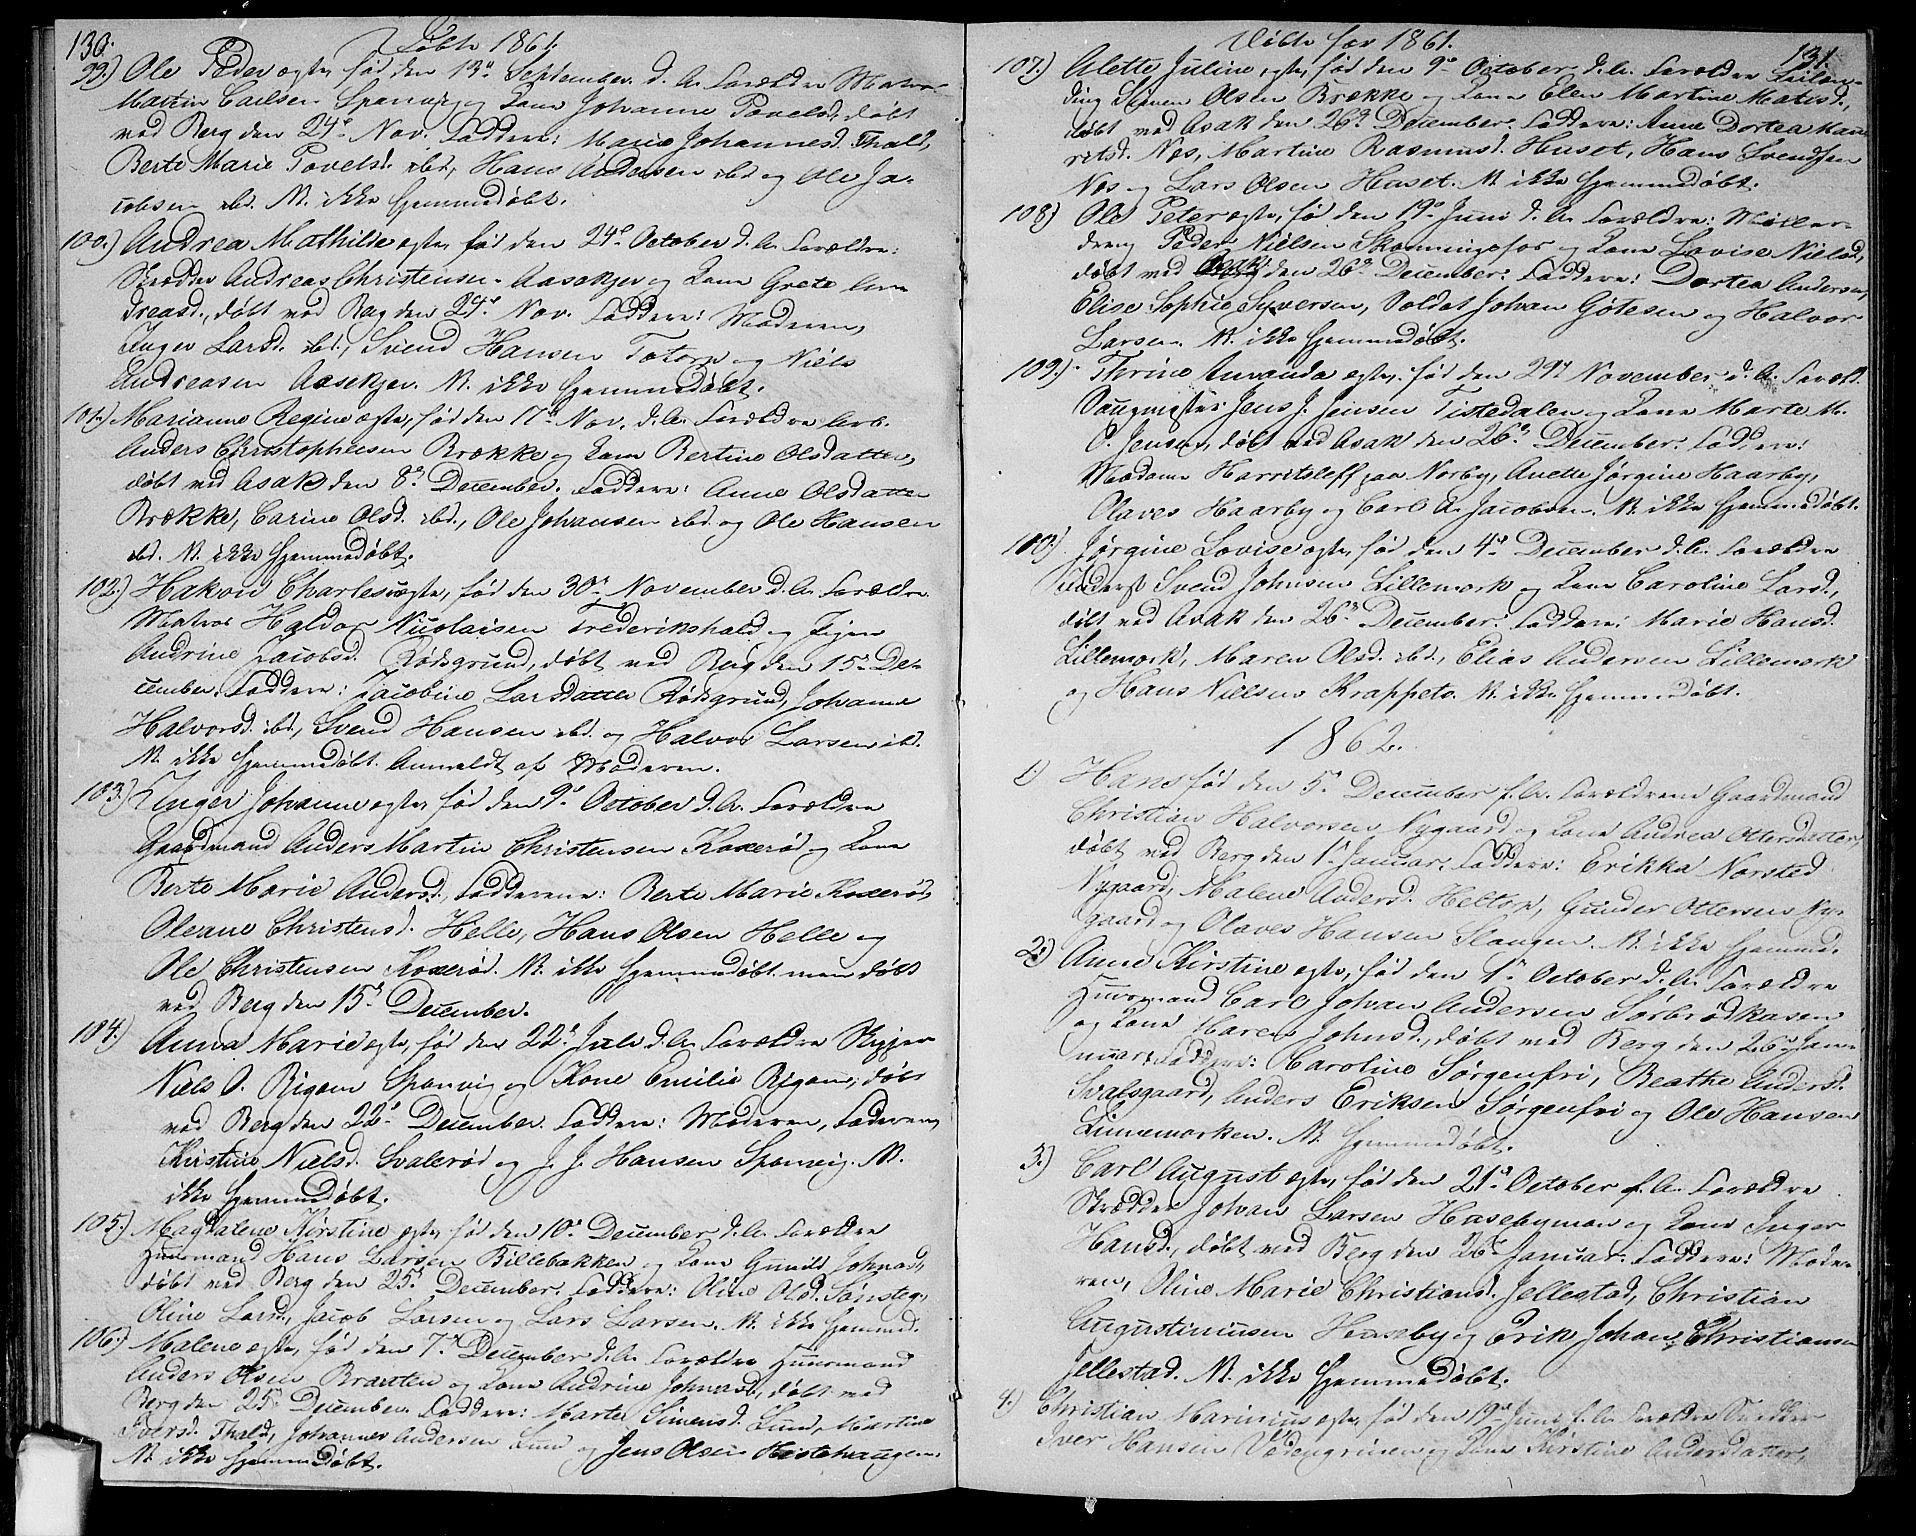 130.
Døbte 1861.
99.) Ole Peder ægte, fød den 13de September d. A. Forældre Matros
Martin Carlsen Sponvig og Kone Johanne Povelsd., døbt
ved Berg den 24de Nov. Faddere: Marie Johannesd. Thald,
Berte Marie Povelsd. ibd., Hans Andersen ibd. og Ole Ja-
cobsen ibd. N. ikke hjemmedøbt.
100.) Andrea Mathilde ægte, fød den 24de October d. A. Forældre:
Skrædder Andreas Christensen Aasekjer og Kone Grete An-
dreasd., døbt ved Berg den 24de Nov. Faddere: Moderen,
Inger Larsd. ibd., Svend Hansen Totorp og Niels
Andreasen Aasekjer. N. ikke hjemmedøbt.
101.) Marianne Regine ægte, fød den 17de Nov. d. A. Forældre Arb.
Anders Christophersen Brække og Kone Bertine Olsdatter,
døbt ved Asak den 8de December. Faddere: Anne Olsdatter
Brække, Carine Olsd. ibd., Ole Johansen ibd. og Ole Hansen
ibd. N. ikke hjemmedøbt.
102.) Hakon Charles uægte, fød den 30te November d. A. Forældre
Matros Haldor Nicolaisen Frederikshald og Pigen
Andrine Jacobsd. Rødsgrund, døbt ved Berg den 15de De-
cember. Faddere: Jacobine Larsdatter Rødsgrund, Johanne
Halvorsd. ibd., Svend Hansen ibd. og Halvor Larsen ibd.
N. ikke hjemmedøbt. Anmeldt af Moderen.
103.) Inger Johanne ægte, fød den 9de October d. A. Forældre
Gaardmand Anders Martin Christensen Koxerød og Kone
Berte Marie Andersd., Fadderene: Berte Marie Koxerød,
Oleane Christensd. Helle, Hans Olsen Helle og
Ole Christensen Koxerød. N. ikke hjemmedøbt men døbt
ved Berg den 15de December.
104.) Anna Marie ægte, fød den 22de Juli d. A. Forældre Skipper
Niels O. Rigem Sponvig og Kone Emilie Rigem, døbt
ved Berg den 22de December. Faddere: Moderen, Faderen,
Kristine Nielsd. Svalerød og J. J. Hansen Sponvig. N.
ikke hjemmedøbt.
105.) Magdalene Kirstine ægte, fød den 10de December d. A. Forældre
Huusmand Hans Larsen Billebakken og Kone Gunild Johnsd.,
døbt ved Berg den 25de December. Faddere: Oline Olsd. Sønsteg.,
Oline Larsd., Jacob Larsen og Lars Larsen. N. ikke hjemmed.
106.) Malene ægte, fød den 7de December d. A. Forældre Huusmand
Anders Olsen Bratten og Kone Andrine Johnsd., døbt ved
Berg den 25de December. Faddere: Marte Simensd. Lund, Martine
Iversd. Thald, Johannes Andersen Lund og Jens Olsen Histehaugen.
N. ikke hjemmedøbt.
Døbte for 1861.
131.
107.) Alette Juline, ægte, fød den 9de October d. A. Forældre Leilæn-
ding Simen Olsen Brække og Kone Elen Martine Matisd.,
døbt ved Asak den 26de December. Faddere: Anne Dortea Mau-
ritsd. Nes, Martine Rasmusd. Huset, Hans Svendsen
Nes og Lars Olsen Huset. N. ikke hjemmedøbt.
108.) Ole Peter ægte, fød den 19de Juni d. A. Forældre: Møller-
dreng Peder Nielsen Skonningsfos og Kone Lovise Nielsd.,
døbt ved Asak den 26de December. Faddere: Dortea Andersen,
Elise Sophie Syversen, Soldat Johan Gøtesen og Halvor
Larsen. N. ikke hjemmedøbt.
109.) Thrine Amanda ægte, fød den 29de November d. A. Foræld.
Saugmester Jens J. Jensen Tistedalen og Kone Marte M.
O. Jensen, døbt ved Asak den 26de December. Faddere:
Madame Harritsleff paa Norby, Anette Jørgine Haarby,
Olaves Haarby og Carl A. Jacobsen. N. ikke hjemmedøbt.
110.) Jørgine Lovise ægte, fød den 4de December d. A. Forældre
Inderst Svend Johnsen Lillemork og Kone Caroline Larsd.,
døbt ved Asak den 26de December. Faddere: Marie Hansd.
Lillemork, Maren Olsd. ibd., Elias Andersen Lillemork
og Hans Nielsen Krappeto. N. ikke hjemmedøbt.
1862.
1.) Hans fød den 5te December f. A. Forældrene Gaardmand
Christian Halvorsen Nygaard og Kone Andrea Ottersdatter,
døbt ved Berg den 1ste Januar. Faddere: Erikka Norsted
Nygaard, Malene Andersd. Heltorp, Gunder Ottersen Ny-
gaard og Olaves Hansen Slangen. N. ikke hjemmed.
2.) Anne Kirstine ægte, fød den 1ste October d. A. Forældre
Huusmand Carl Johan Andersen Sørbrødkasen
og Kone Maren Johnsd., døbt ved Berg den 26de Jan-
nuar. Faddere: Karoline Sørgenfri, Beathe Andersd.
Svalsgaard, Anders Eriksen Sørgenfri og Ole Hansen
Linnemorken. N. hjemmedøbt.
3.) Carl August ægte, fød den 21de October f. A. Forældre
Skrædder Johan Larsen Husebymon og Kone Inger
Hansd., døbt ved Berg den 26de Januar. Faddere: Mode-
ren, Oline Marie Christiansd. Jellestad, Christian
Augustiniusen Huseby og Erik Johan Christiansen
Jellestad. N. ikke hjemmedøbt.
4.) Christian Marinius ægte, fød den 19de Juni f. A. Forældre Snedker
Iver Hansen Vedengrinen og Kone Kirstine Andersdatter,